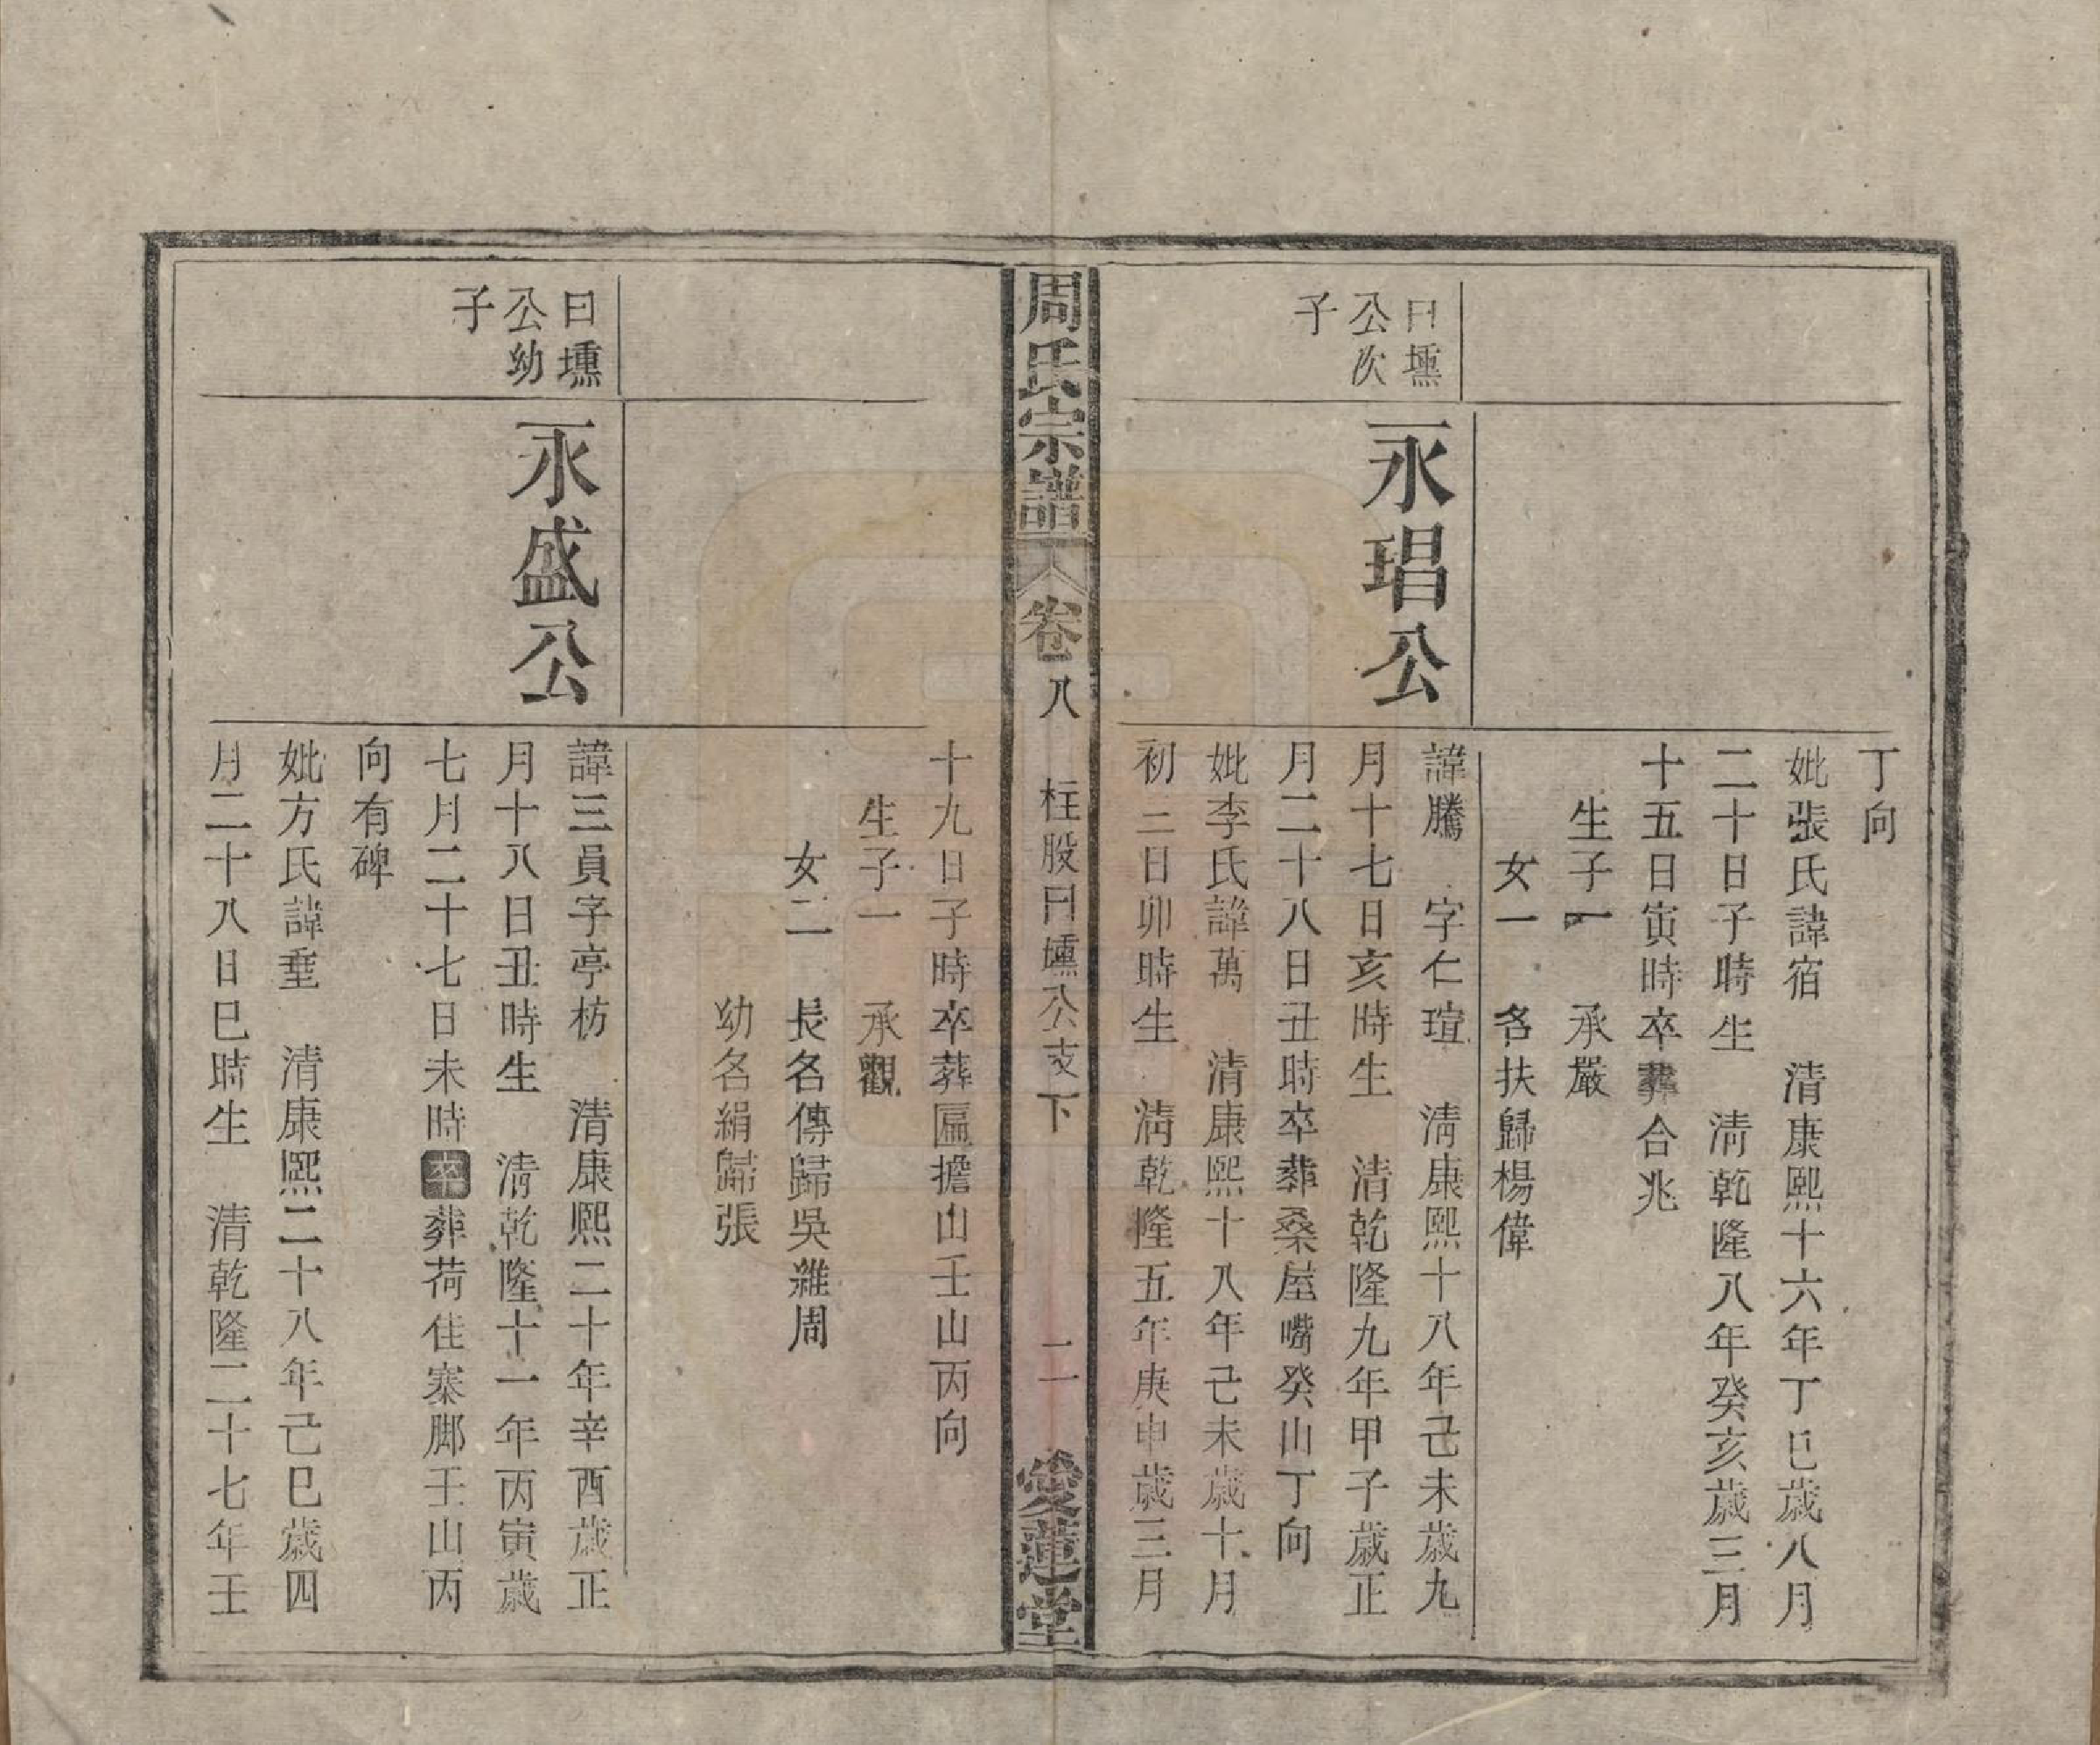 丁向
妣張氏諱宿　清康熙十六年丁巳歲八月
二十日子時生　清乾隆八年癸亥歲三月
十五日寅時卒葬合兆
生子一　承嚴
女一　名扶歸楊偉
曰壎
公次
子
永琩公
諱騰　字仁瑄　清康熙十八年己未歲九
月十七日亥時生　清乾隆九年甲子歲正
月二十八日丑時卒葬桑屋嘴癸山丁向
妣李氏諱萬　清康熙十八年己未歲十月
初二日卯時生　清乾隆五年庚申歲三月
周氏宗譜　卷八　柱股曰壎公支下　二　愛蓮堂
十九日子時卒葬匾擔山壬山丙向
生子一　承觀
女二　長名傳歸吳雜周
幼名絹歸張
曰壎
公幼
子
永盛公
諱三員字亭枋　清康熙二十年辛酉歲正
月十八日丑時生　清乾隆十一年丙寅歲
七月二十七日未時卒葬荷佳寨脚壬山丙
向有碑
妣方氏諱垂　清康熙二十八年己巳歲四
月二十八日巳時生　清乾隆二十七年壬